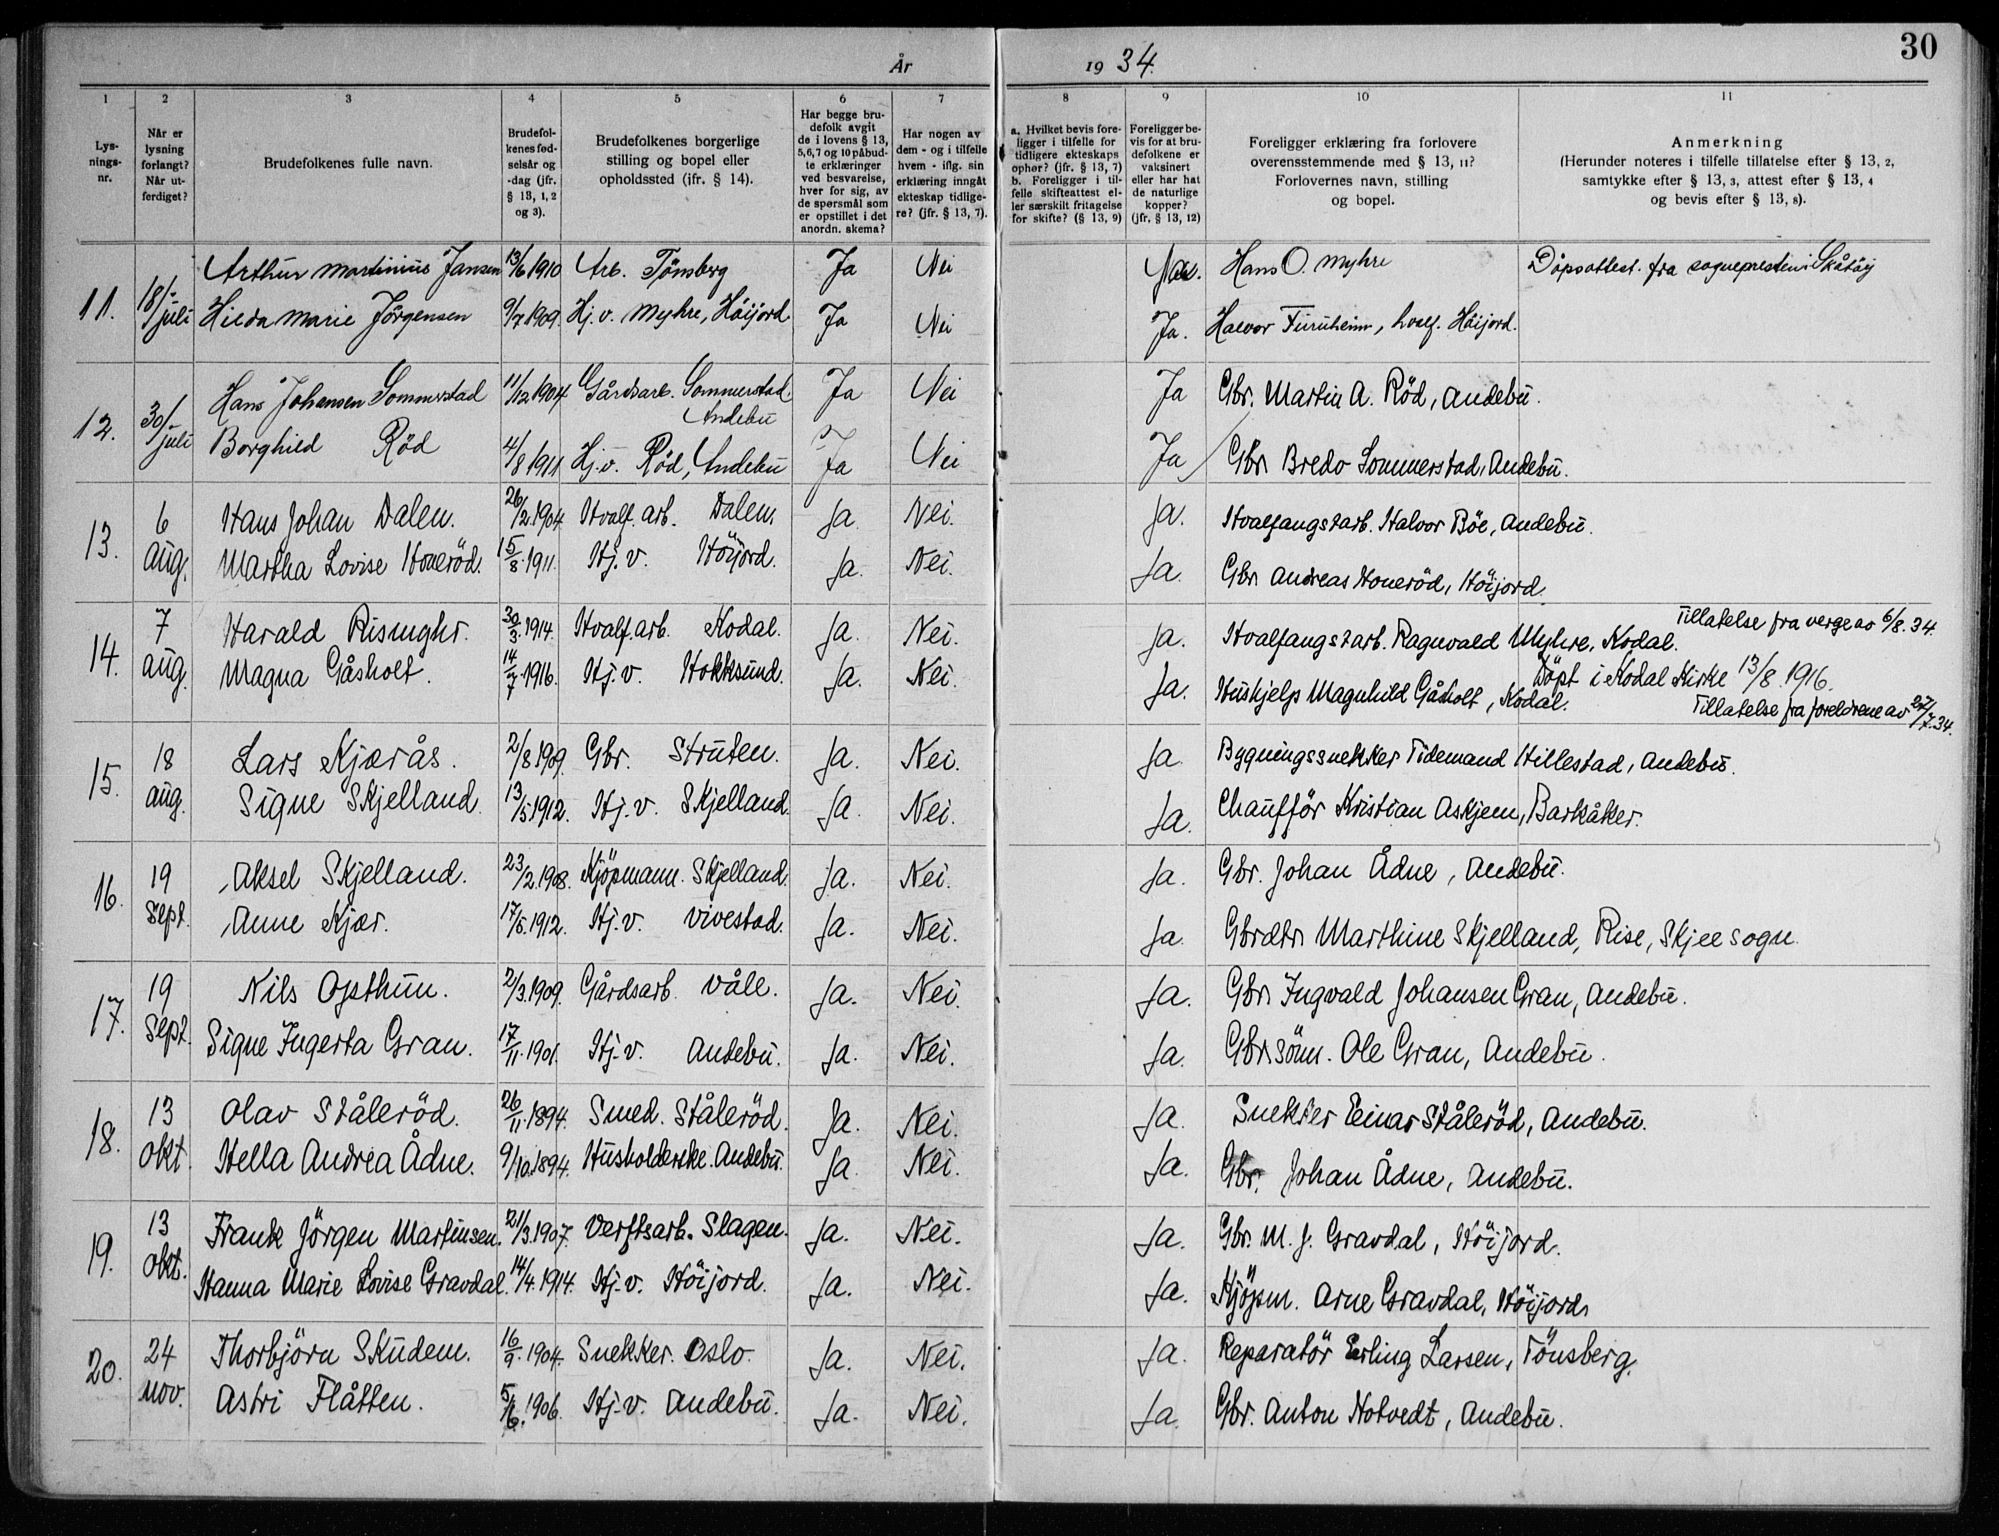 30
År 1934.
1 2 3 4 5 6 7 8 9 10 11
Lys-
nings-
nr.
Når er
lysning
forlangt?
Når ut-
ferdiget?
Brudefolkenes fulle navn.
Brudefol-
kenes fød-
selsår og
-dag (jfr.
§ 13, 1, 2
og 3).
Brudefolkenes borgerlige
stilling og bopel eller
opholdssted (ifr. § 14).
Har begge bru-
defolk avgit
de i lovens § 13,
5,6,7 og 10 påbud-
te erklæringer
ved besvarelse,
hver for sig, av
de spørsmål som
er opstillet i det
anordn. skema?
Har nogen av
dem - og i tilfelle
hvem - iflg. sin
erklæring inngåt
ekteskap tidlige-
re? (jfr. § 13, 7).
a. Hvilket bevis fore-
ligger i tilfelle for
tidligere ekteskaps
ophør? (jfr. § 13, 7)
b. Foreligger i til-
felle skifteattest el-
ler særskilt fritagelse
for skifte? (§ 13, 9)
Foreligger be-
vis for at bru-
defolkene er
vaksinert
eller har hat
de naturlige
kopper?
(jfr. § 13, 12)
Foreligger erklæring fra forlovere
overensstemmende med § 13, 11?
Forlovernes navn, stilling
og bopel.
Anmerkning
(Herunder noteres i tilfelle tillatelse efter § 13, 2,
samtykke efter § 13, 3, attest efter § 13, 4
og bevis efter § 13, 8).
Arthur Martinius Jansen 13/6 1910 Arb. Tönsberg Ja Nei Hans O. Myhre Dåpsattest fra sognepresten i Skåtöy
11. 18/ juli Hilda Marie Jörgensen 9/7 1909. Hj. v. Myhre, Höijord Ja Nei Ja. Halvor Furuheim, hvalf. Höijord.
Hans Johansen Sommerstad 11/12 1904 Gårdsarb. Sommerstad. Andebu Ja Nei Ja Gbr. Martin A. Röd, Andebu.
12. 30/ juli Borghild Röd 4/8 1911 Hj. v. Röd, Andebu Ja Nei Ja Gbr. Bredo Sommerstad, Andebu.
13. 6 Hans Johan Dalen. 26/2 1904. Hvalf. arb. Dalen. Ja. Nei. Ja. Hvalfangstarb. Halvor Böe, Andebu.
aug. Martha Lovise Honeröd. 15/8 1911. Hj. v. Höijord. Ja. Nei. Ja. Gbr. Andreas Honeröd, Höijord.
14. 7 Harald Rismyhr. 30/3. 1914. Hvalf. arb. Kodal. Ja. Nei. Ja. Hvalfangstarb. Ragnvald Myhre, Kodal. Tillatelse fra verge av 6/8. 34.
aug. Magna Gåsholt. 14/7 1916. Hj. v. Hokksund. Ja. Nei. Ja. Hushjelp Magnhild Gåsholt, Kodal. Döpt i Kodal Kirke 13/8. 1916.
Tillatelse fra foreldrene av 27/7. 34.
15. 18 Lars Kjærås. 2/8 1909. Gbr. Struten. Ja. Nei. Ja. Bygningssnekker Tidemand Hillestad, Andebu.
aug. Signe Skjelland. 13/5 1912. Hj. v. Skjelland. Ja. Nei. Ja. Chaufför Kristian Askjem, Barkåker.
16. 19 Aksel Skjelland. 23/2. 1908. Kjöpmann. Skjelland. Ja. Nei. Ja. Gbr. Johan Ådne, Andebu.
sept. Anne Kjær. 17/5. 1912. Hj. v. Vivestad. Ja. Nei. Ja. Gbrdtr. Marthine Skjelland, Rise, Skjee sogn.
17. 19 Nils Opsthun. 2/3. 1909. Gårdsarb. Våle. Ja. Nei. Ja. Gbr. Ingvald Johansen Gran, Andebu.
sept. Signe Ingerta Gran. 17/11. 1901. Hj. v. Andebu. Ja. Nei. Ja. Gbr. sönn. Ole Gran, Andebu.
18. 13 Olav Ståleröd. 26/11. 1894. Smed. Ståleröd. Ja. Nei. Ja. Snekker Einar Ståleröd, Andebu.
okt. Hella Andrea Ådne. 9/10. 1894. Husholderske. Andebu. Ja. Nei. Ja. Gbr. Johan Ådne, Andebu.
19. 13 Frank Jörgen Martinsen. 21/3. 1907. Verftsarb. Slagen. Ja. Nei. Ja. Gbr. M. J. Gravdal, Höijord.
okt. Hanna Marie Lovise Gravdal. 14/4. 1914. Hj. v. Höijord. Ja. Nei. Ja. Kjöpm. Arne Gravdal, Höijord.
20. 24 Thorbjörn Skudem. 16/9. 1904. Snekker. Oslo. Ja. Nei. Ja. Reparatör Erling Larsen, Tönsberg.
nov. Astri Flåtten. 5/6. 1906. Hj. v. Andebu. Ja. Nei. Ja. Gbr. Anton Notvedt, Andebu.